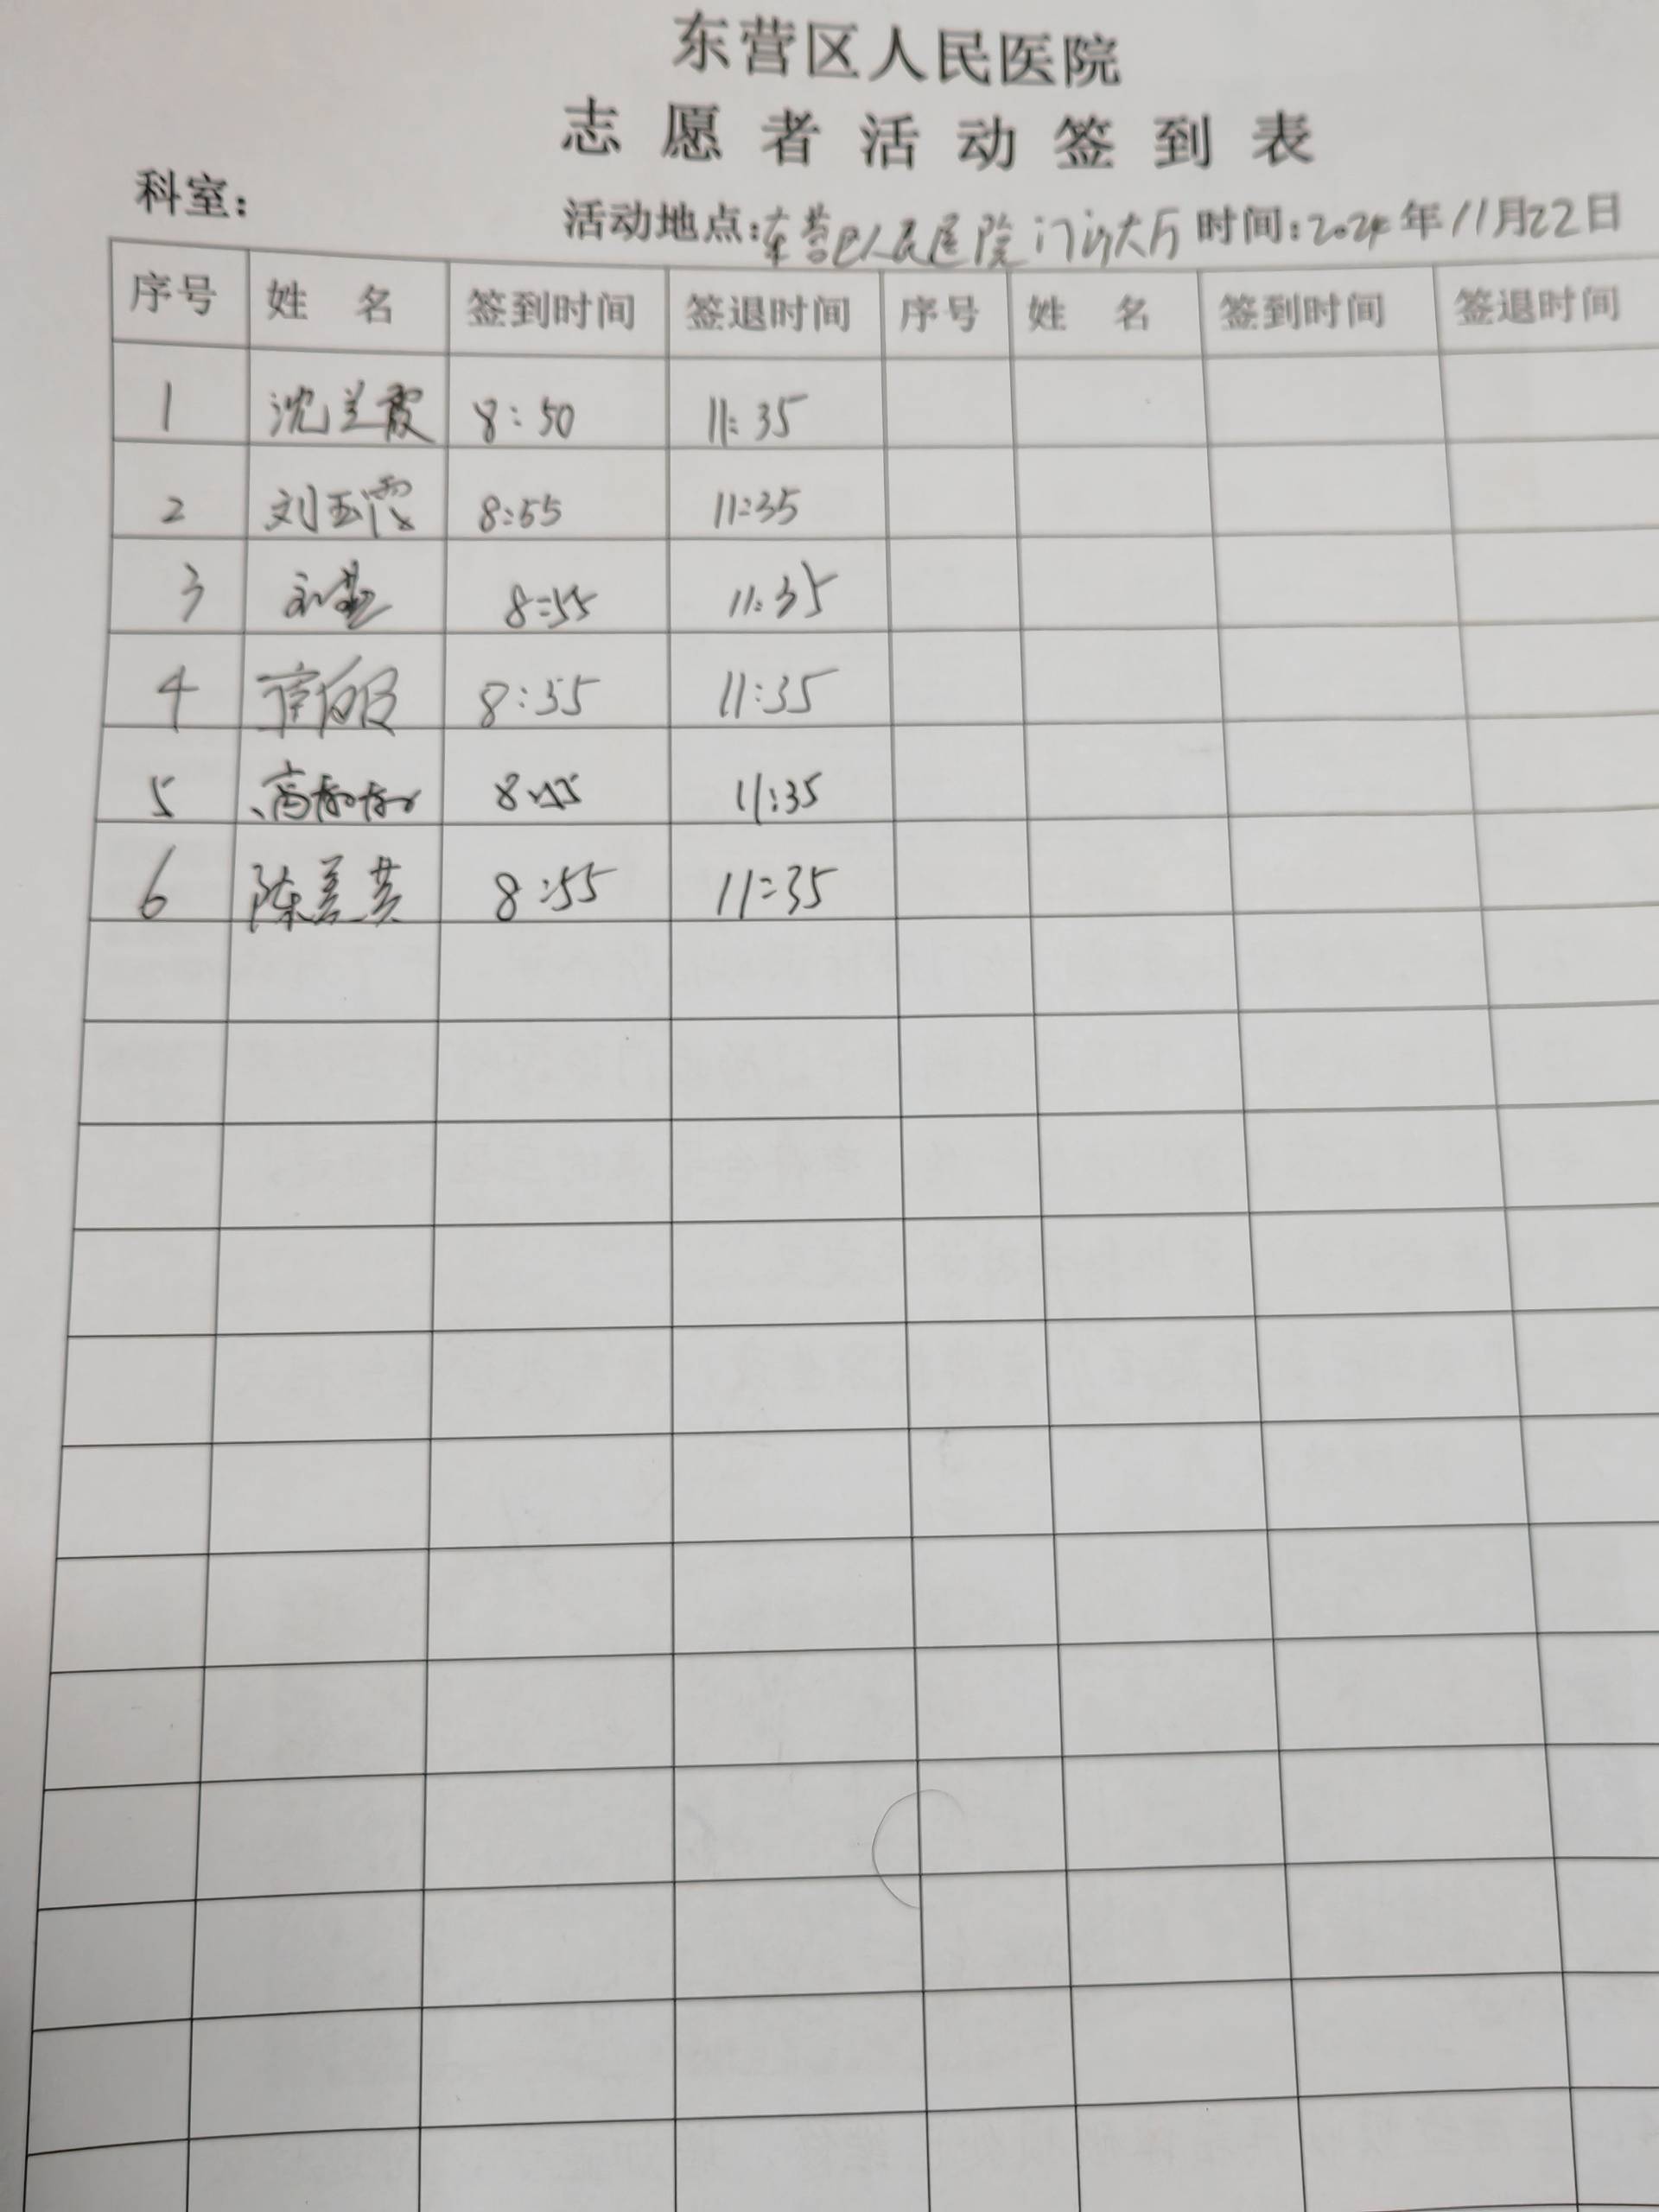 东营区人民医院
志愿者活动签到表
科室: 活动地点:东营区人民医院门诊大厅 时间:2024年11月22日
序号 姓名 签到时间 签退时间 序号 姓名 签到时间 签退时间
1 沈兰霞 8:50 11:35
2 刘玉霞 8:55 11:35
3 8:55 11:35
4 8:55 11:35
5 高 11:35
6 陈美英 8:55 11:35